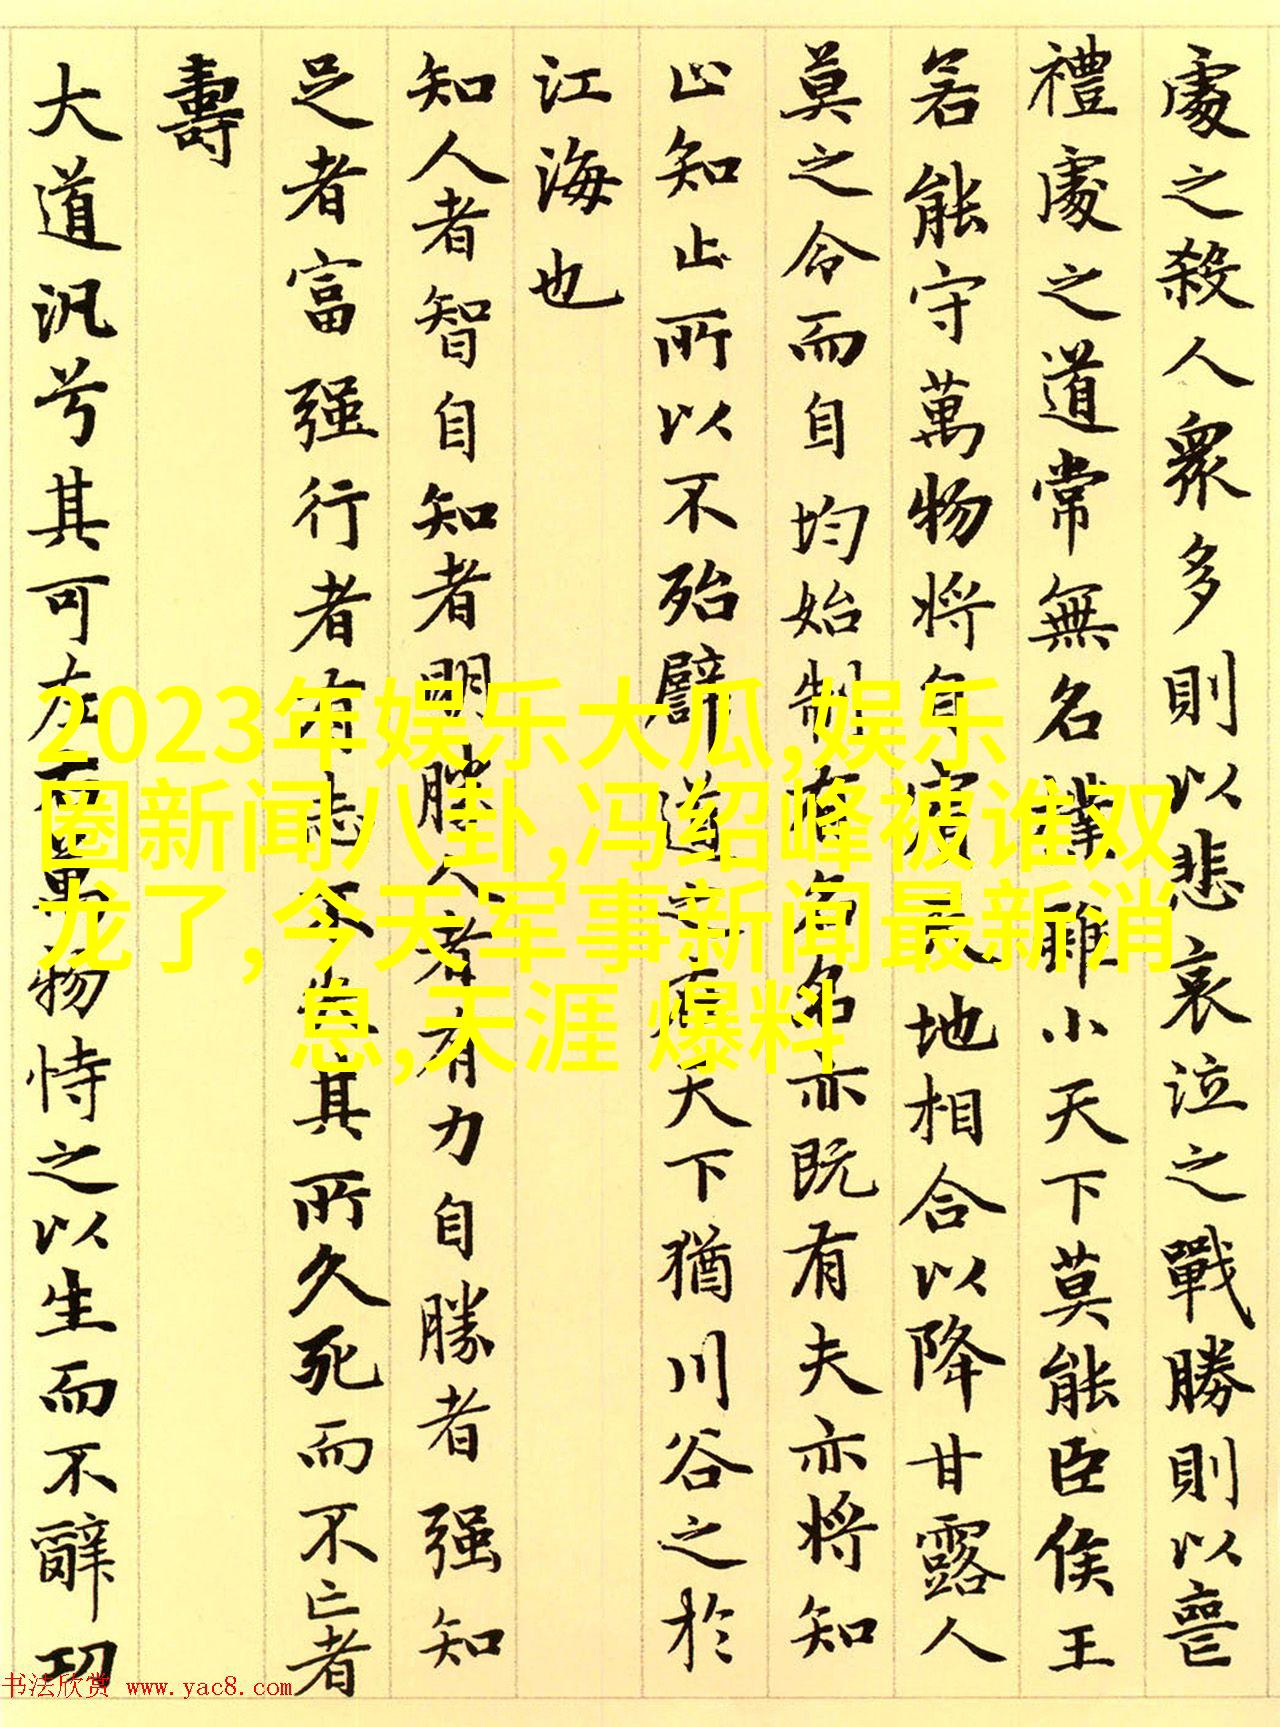 處之殺人衆多則以悲哀泣之戰勝則以喪
禮處之道常無名樸雖小天下莫能臣侯王
若能守萬物將自賓天地相合以降甘露人
莫之令而自均始制有名名亦既有夫亦將知
止知止所以不殆譬道之在天下猶川谷之於
江海也
知人者智自知者明勝人者有力自勝者强知
足者富强行者有志不失其所久死而不亡者
壽
大道汎兮其可左右萬物恃之以生而不辭功
2023年娱乐大瓜,娱乐
圈新闻八卦,冯绍峰被谁双
龙了,今天军事新闻最新消
息,天涯 爆料
书法欣赏 www.yac8.com